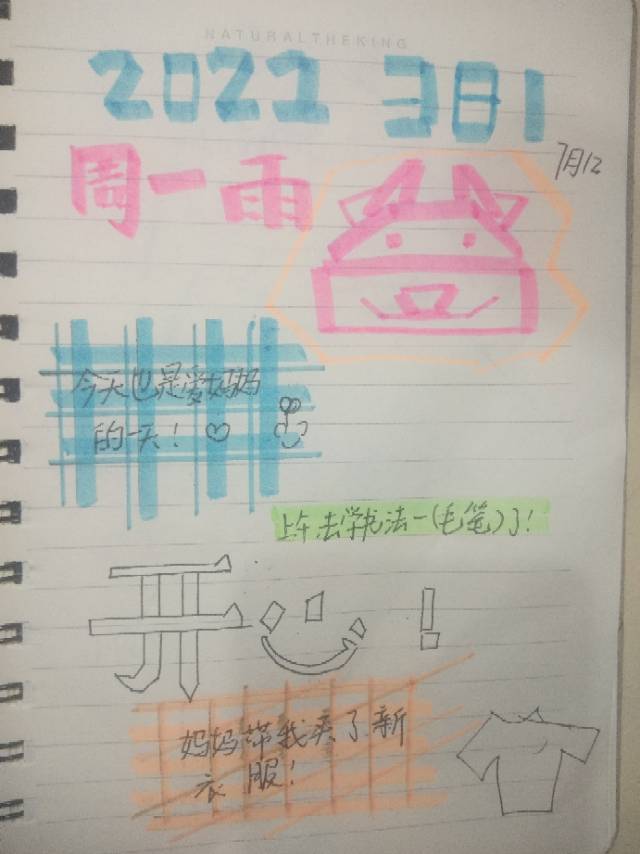 NATURALTHEKING
2022 3日1
7月12
周一雨
今天也是爱妈妈
的一天！♡
上午去学书法一(毛笔)了！
开心！
妈妈带我买了新
衣服！